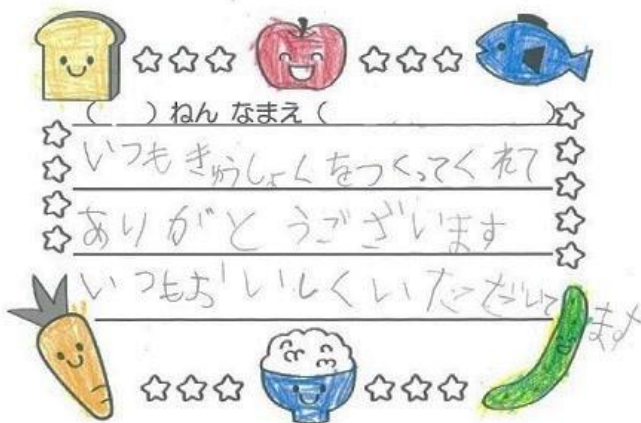 （　）ねん なまえ（　　　　　）
いつもきゅうしょくをつくってくれて
ありがとうございます
いつもおいしくいただいて
ます